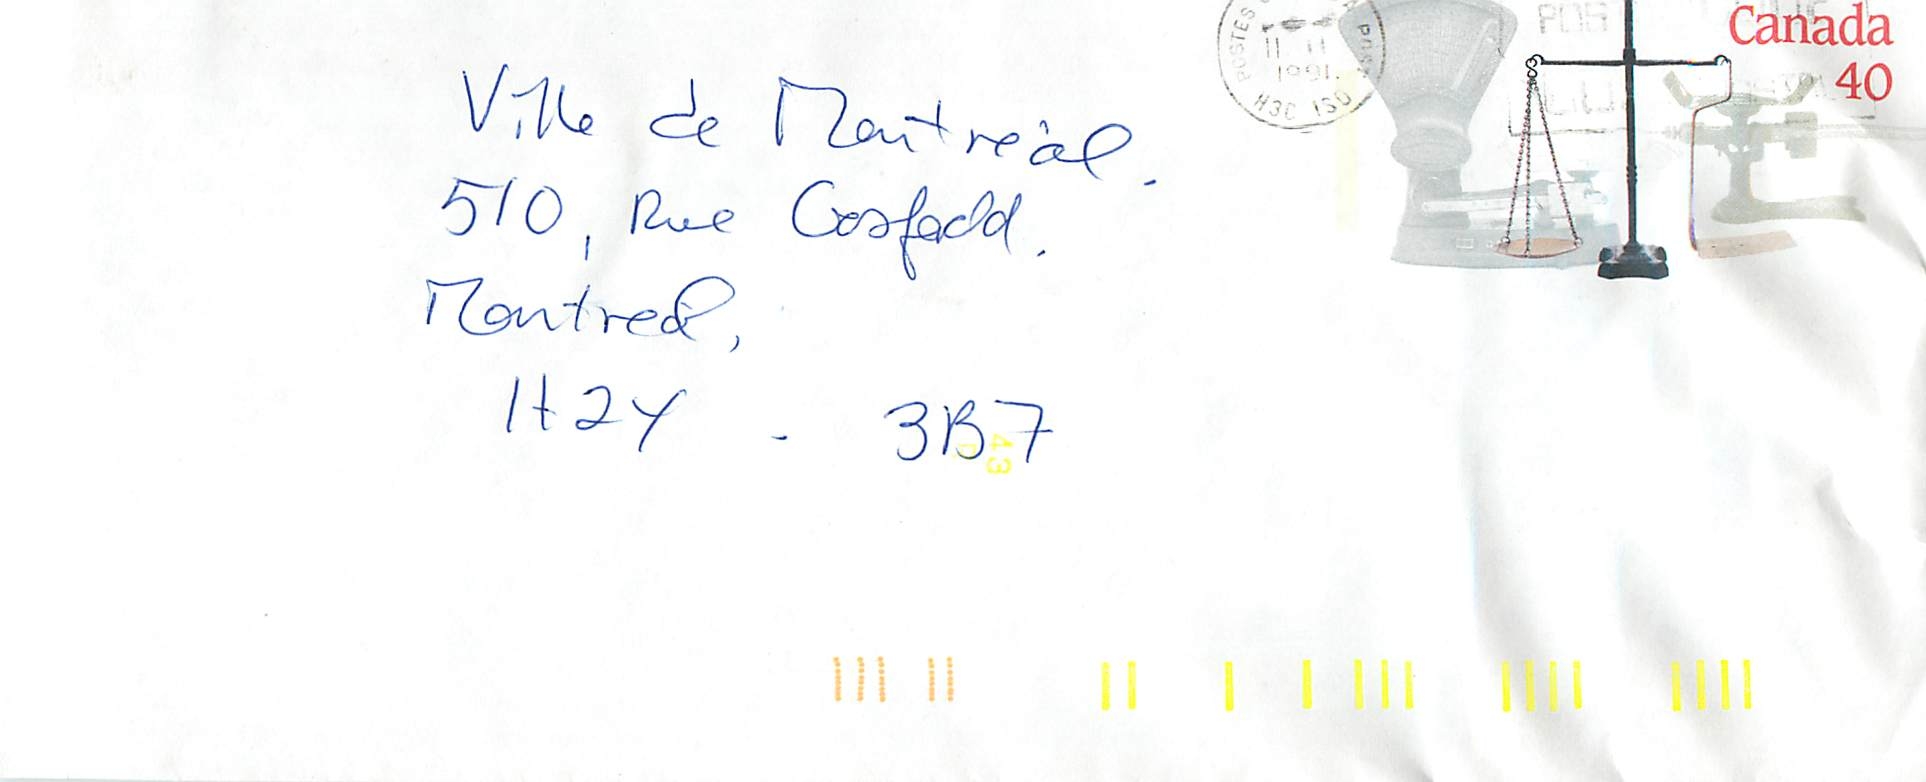 Ville de Montréal.
510, Rue Gosfadd.
Montreal,
H2Y - 3B7
Canada
40
POSTES
11 11
1991
H3C 1S0
POS
43